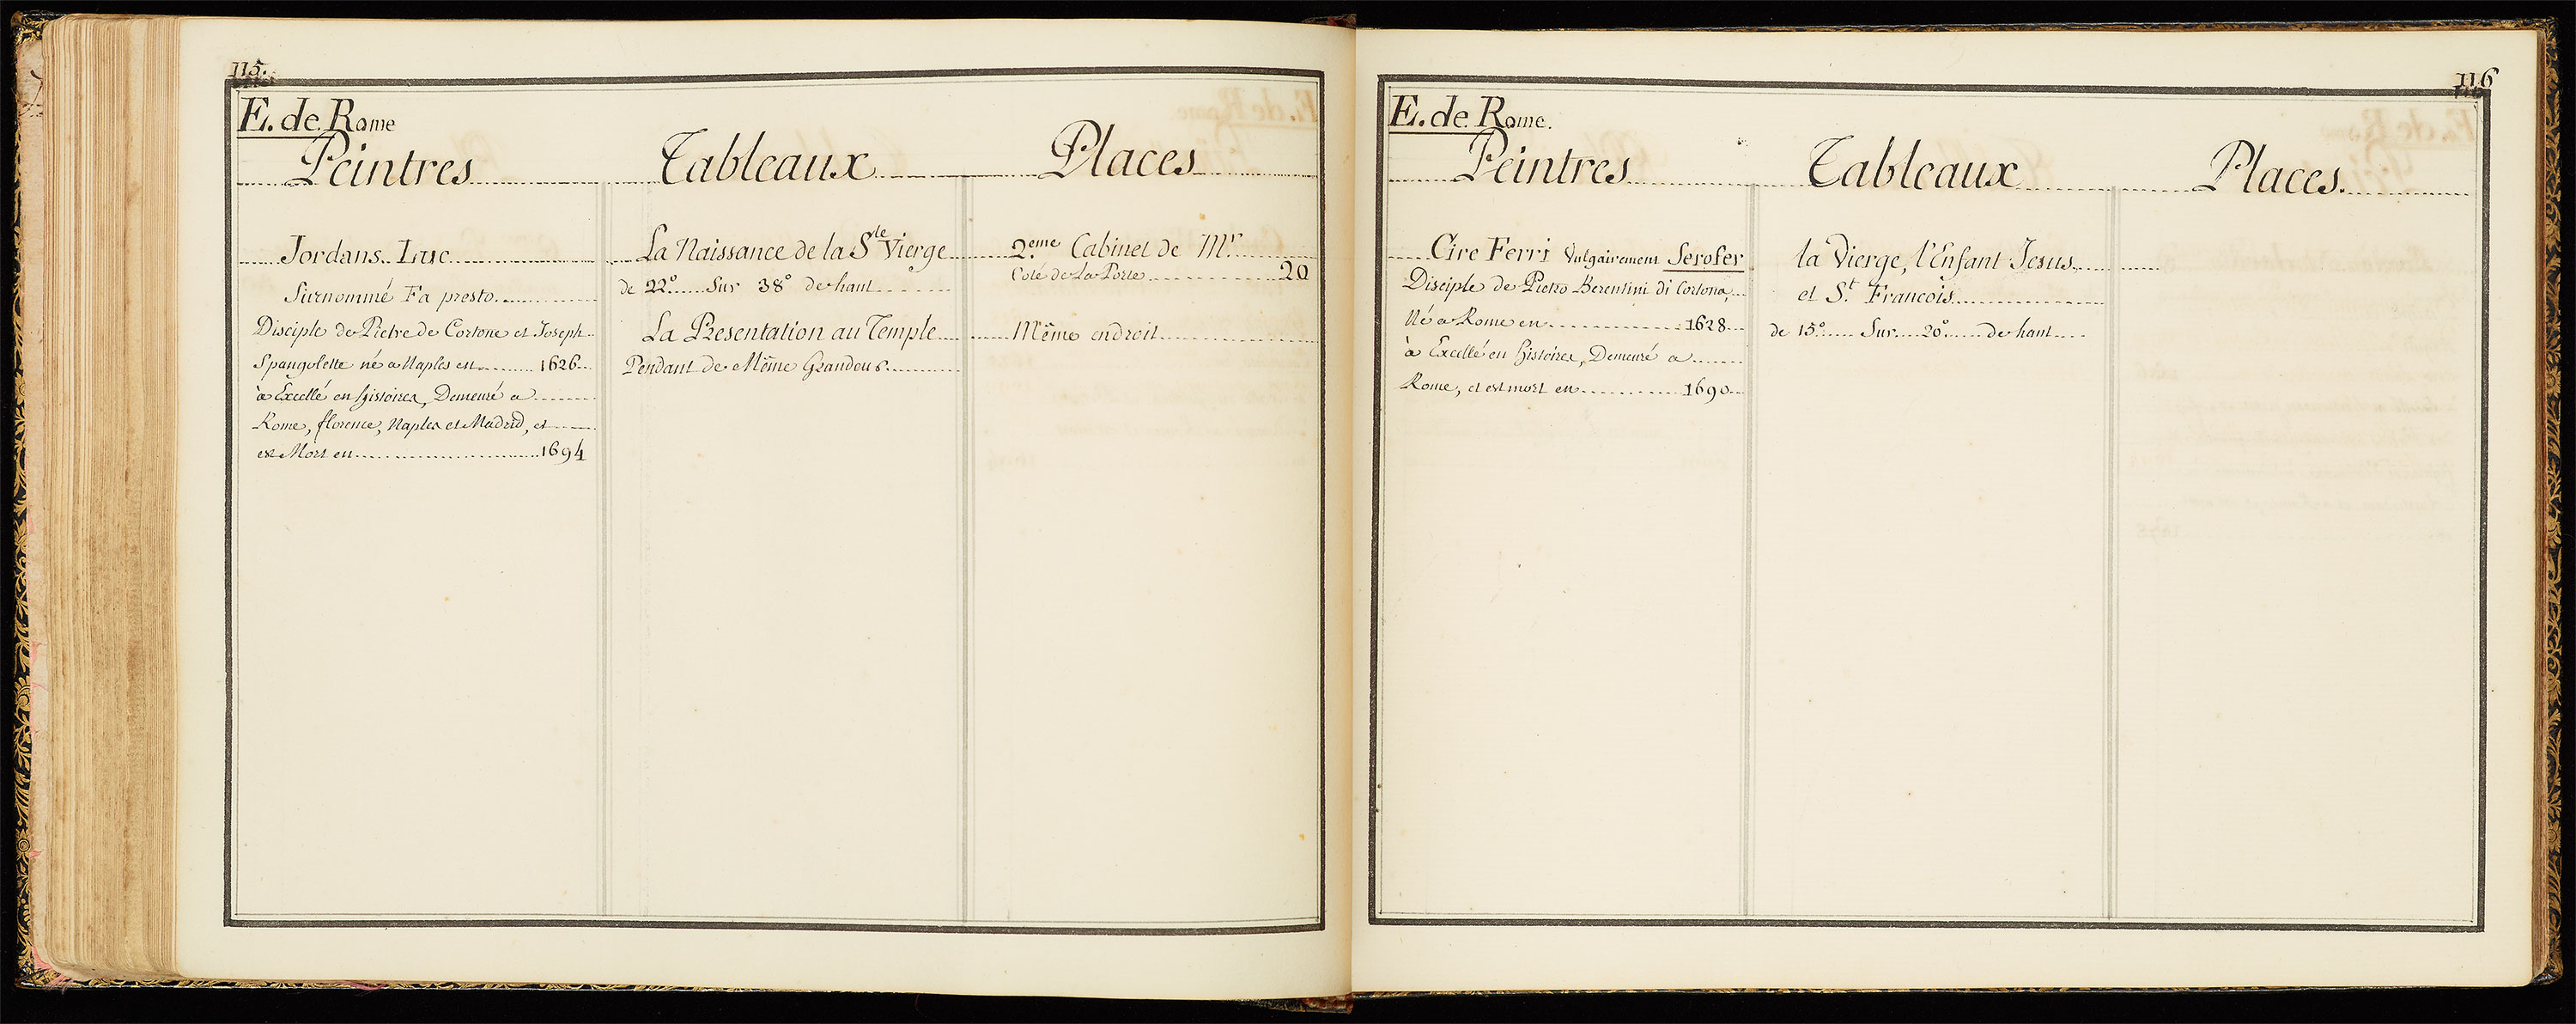 115.
E. de Rome
Peintres Tableaux Places
Jordans Luc
Surnommé Fa presto
Disciple de Pietre de Cortone et Joseph
Spangolette né a Naples en 1626
à Excellé en histoires, Demeuré a
Rome, florence, Naples et Madrid, et
est Mort en 1694
La Naissance de la Ste Vierge
de 22° Sur 38° de haut
La Presentation au Temple
Pendant de Même Grandeur
2.eme Cabinet de Mr
Coté de La Porte 20
Même endroit
116
E. de Rome.
Peintres Tableaux Places.
Cire Ferri Vulgairement Serofer
Disciple de Pietro Berentini di Cortona,
Né a Rome en 1628
à Excellé en histoires, Demeuré a
Rome, et est mort en 1690
la Vierge, l'Enfant Jesus
et St. Francois
de 15° Sur 20° de haut